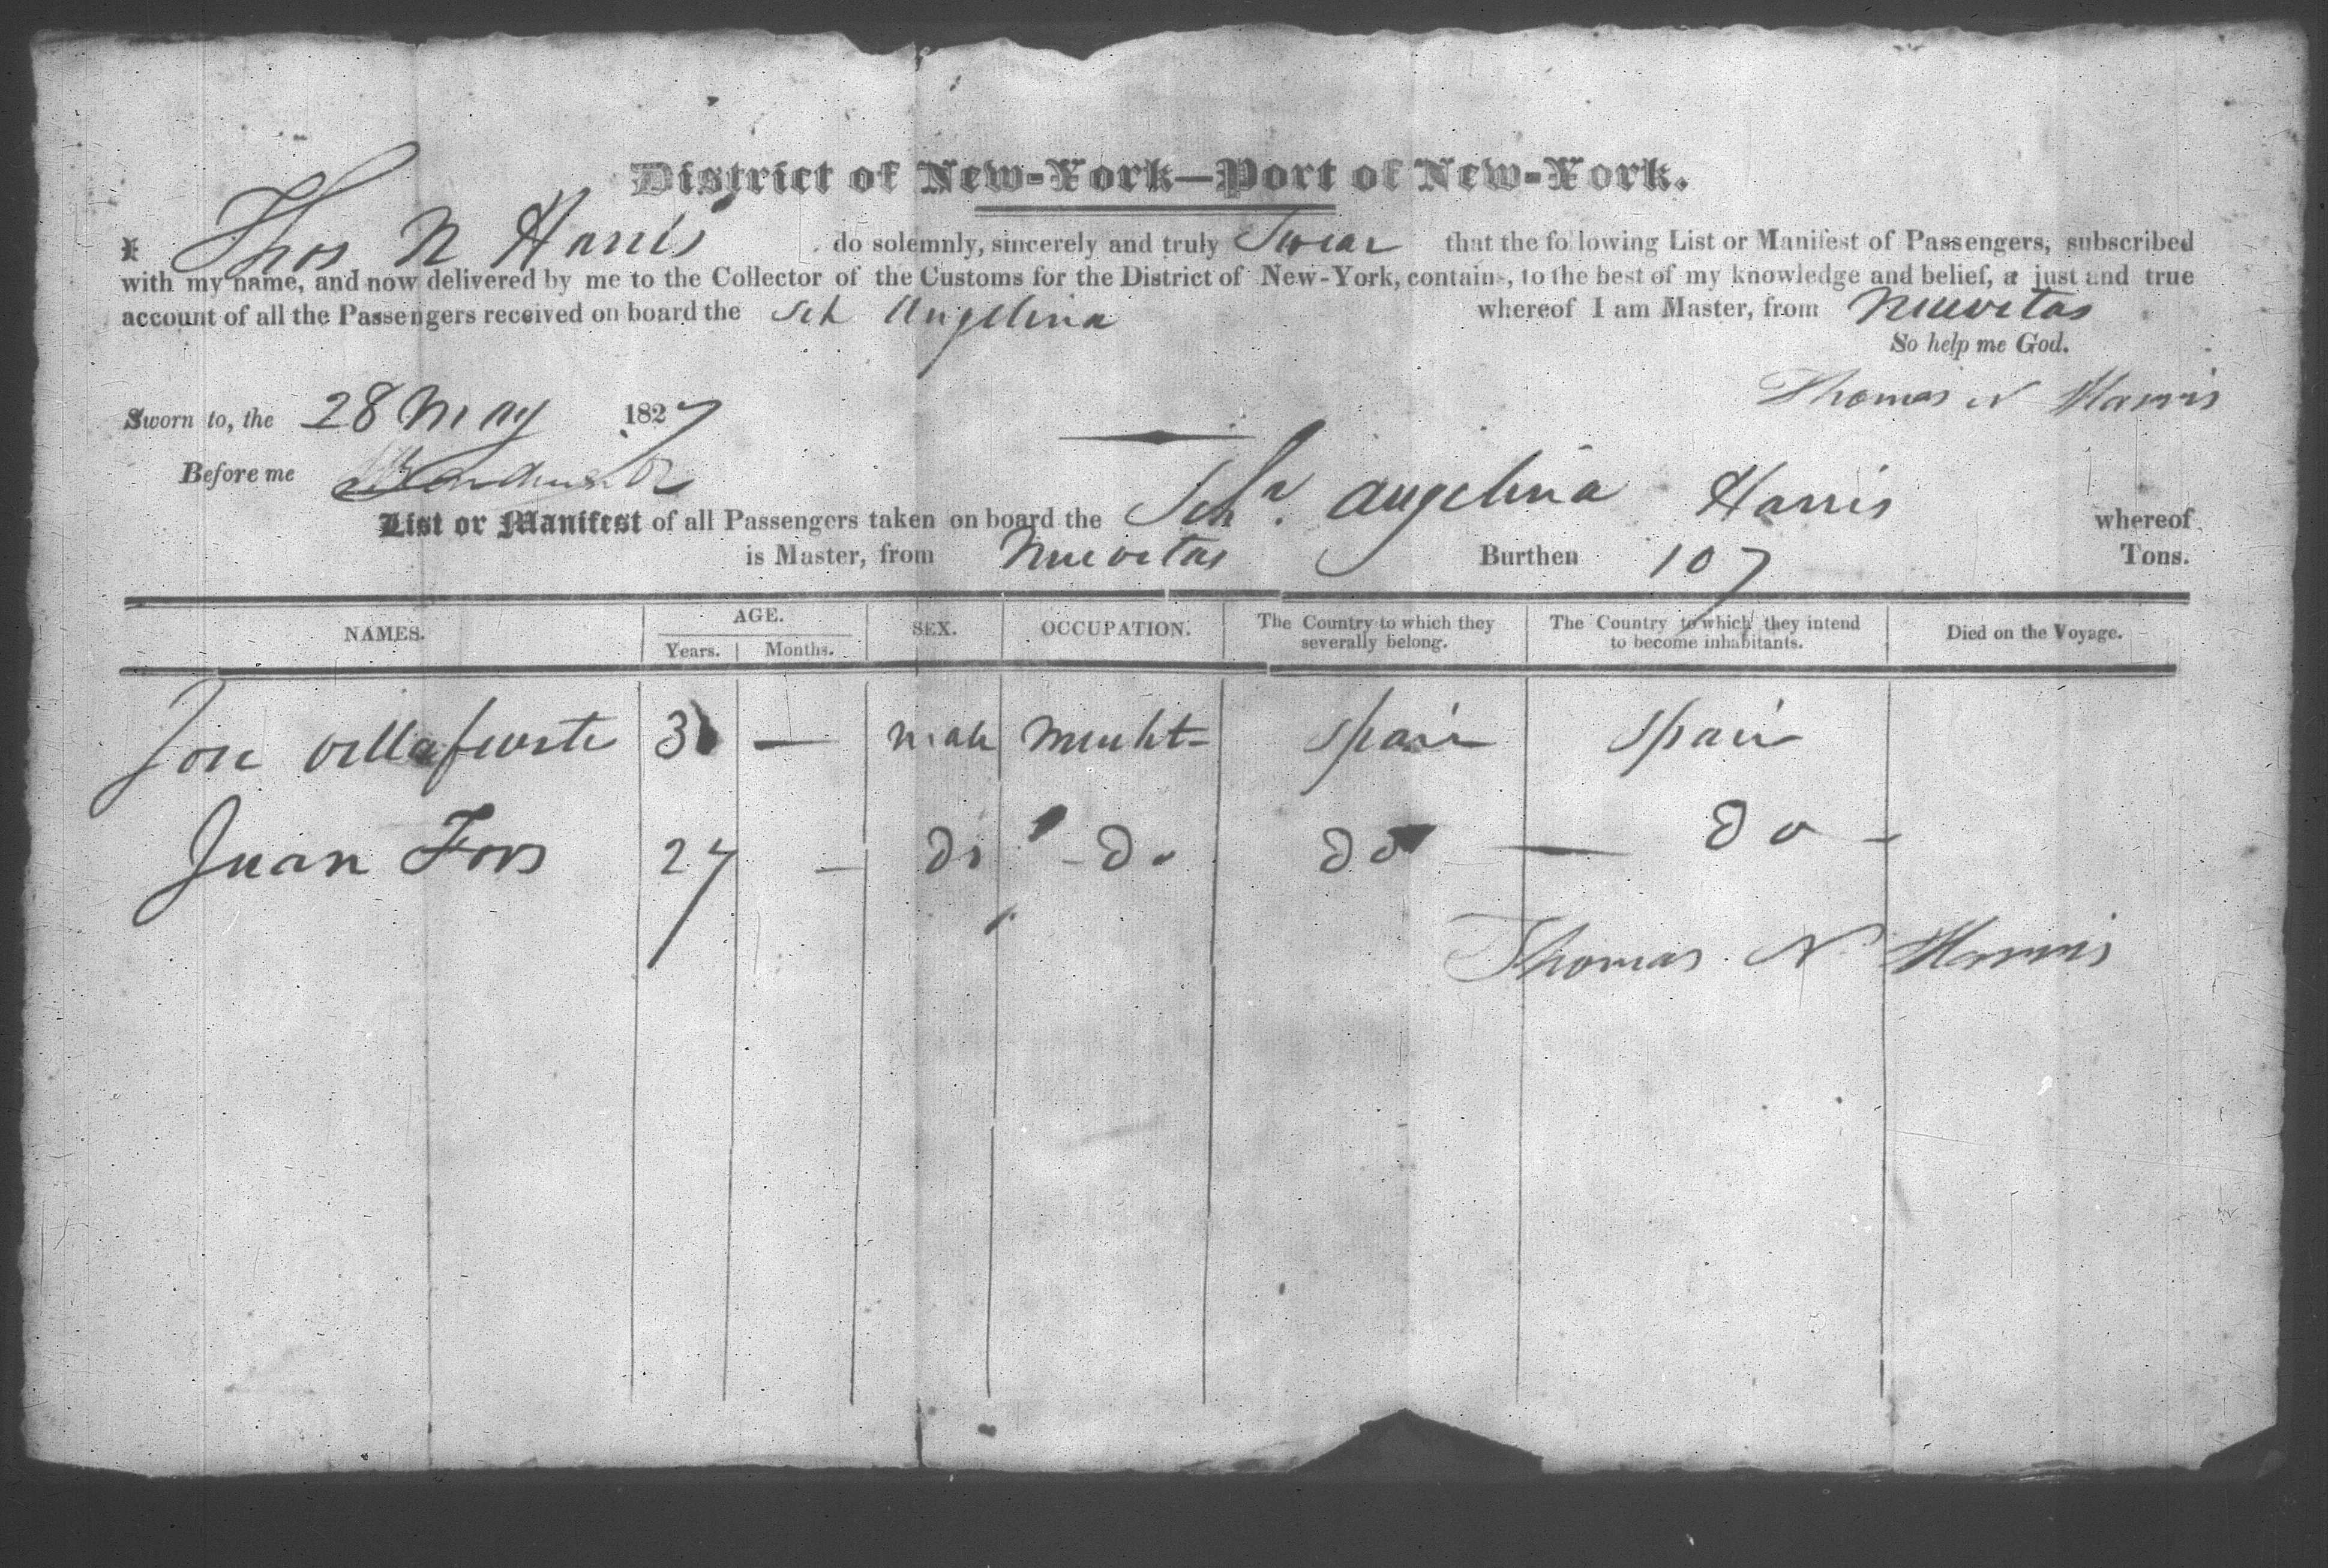 District of New-York—Port of New-York.
I Thos N Harris do solemnly, sincerely and truly Swear that the following List or Manifest of Passengers, subscribed
with my name, and now delivered by me to the Collector of the Customs for the District of New-York, contains, to the best of my knowledge and belief, a just and true
account of all the Passengers received on board the Sch Angelina whereof I am Master, from Nuevitas
So help me God.
Thomas N Harris
Sworn to, the 28 May 1827
Before me
List or Manifest of all Passengers taken on board the Schr. Angelina Harris whereof
is Master, from Nuevitas Burthen 107 Tons.
NAMES. AGE. Years. Months. SEX. OCCUPATION. The Country to which they severally belong. The Country to which they intend to become inhabitants. Died on the Voyage.
Jose villafuerte — male Mercht- Spain Spain
Juan Fors 27 — do - do do — do -
Thomas N Harris